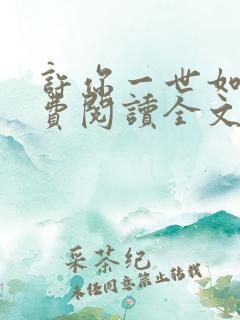 許你一世如
費閱讀全文
采茶纪
未经同意禁止转载